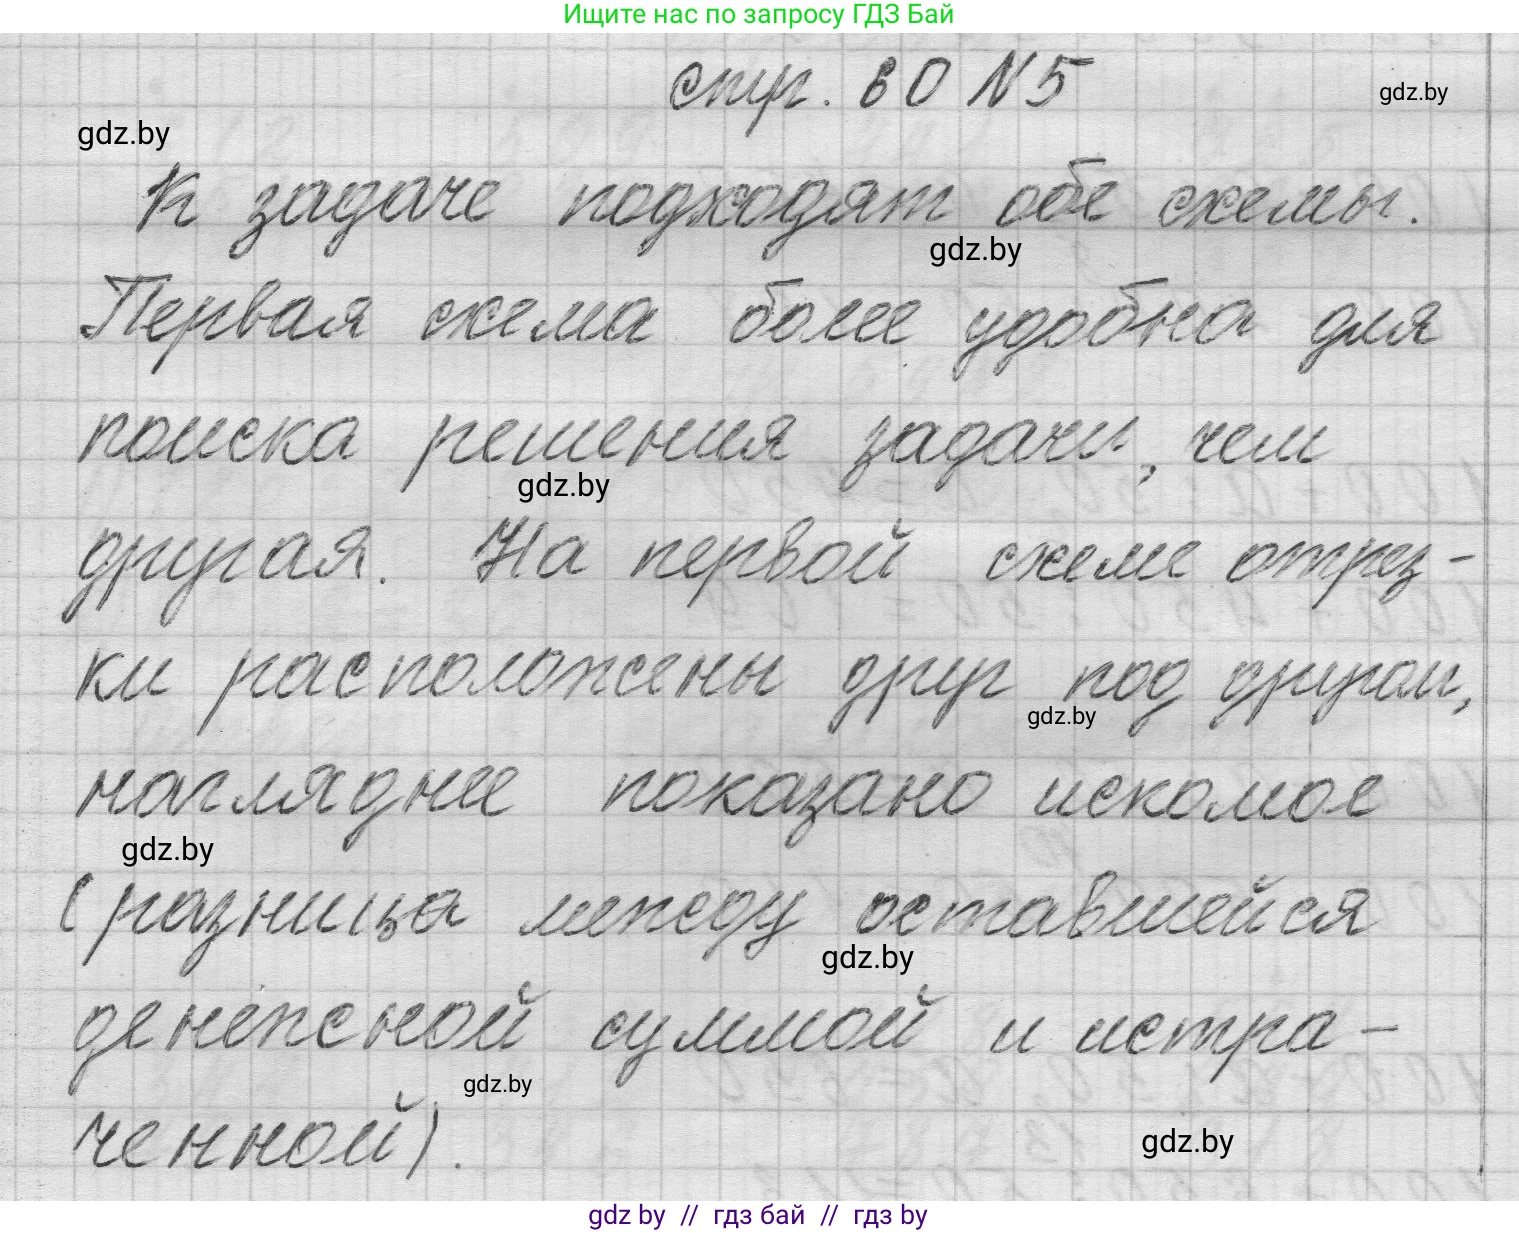 Ищите нас по запросу ГДЗ Бай
стр. 60 N5
gdz.by
gdz.by
К задаче подходят обе схемы.
gdz.by
Первая схема более удобна для
поиска решения задачи, чем
gdz.by
другая. На первой схеме отрез-
ки расположены друг под другом,
gdz.by
нагляднее показано искомое
gdz.by
(разница между оставшейся
gdz.by
денежной суммой и истра-
gdz.by
ченной).
gdz.by
gdz by // гдз бай // гдз by